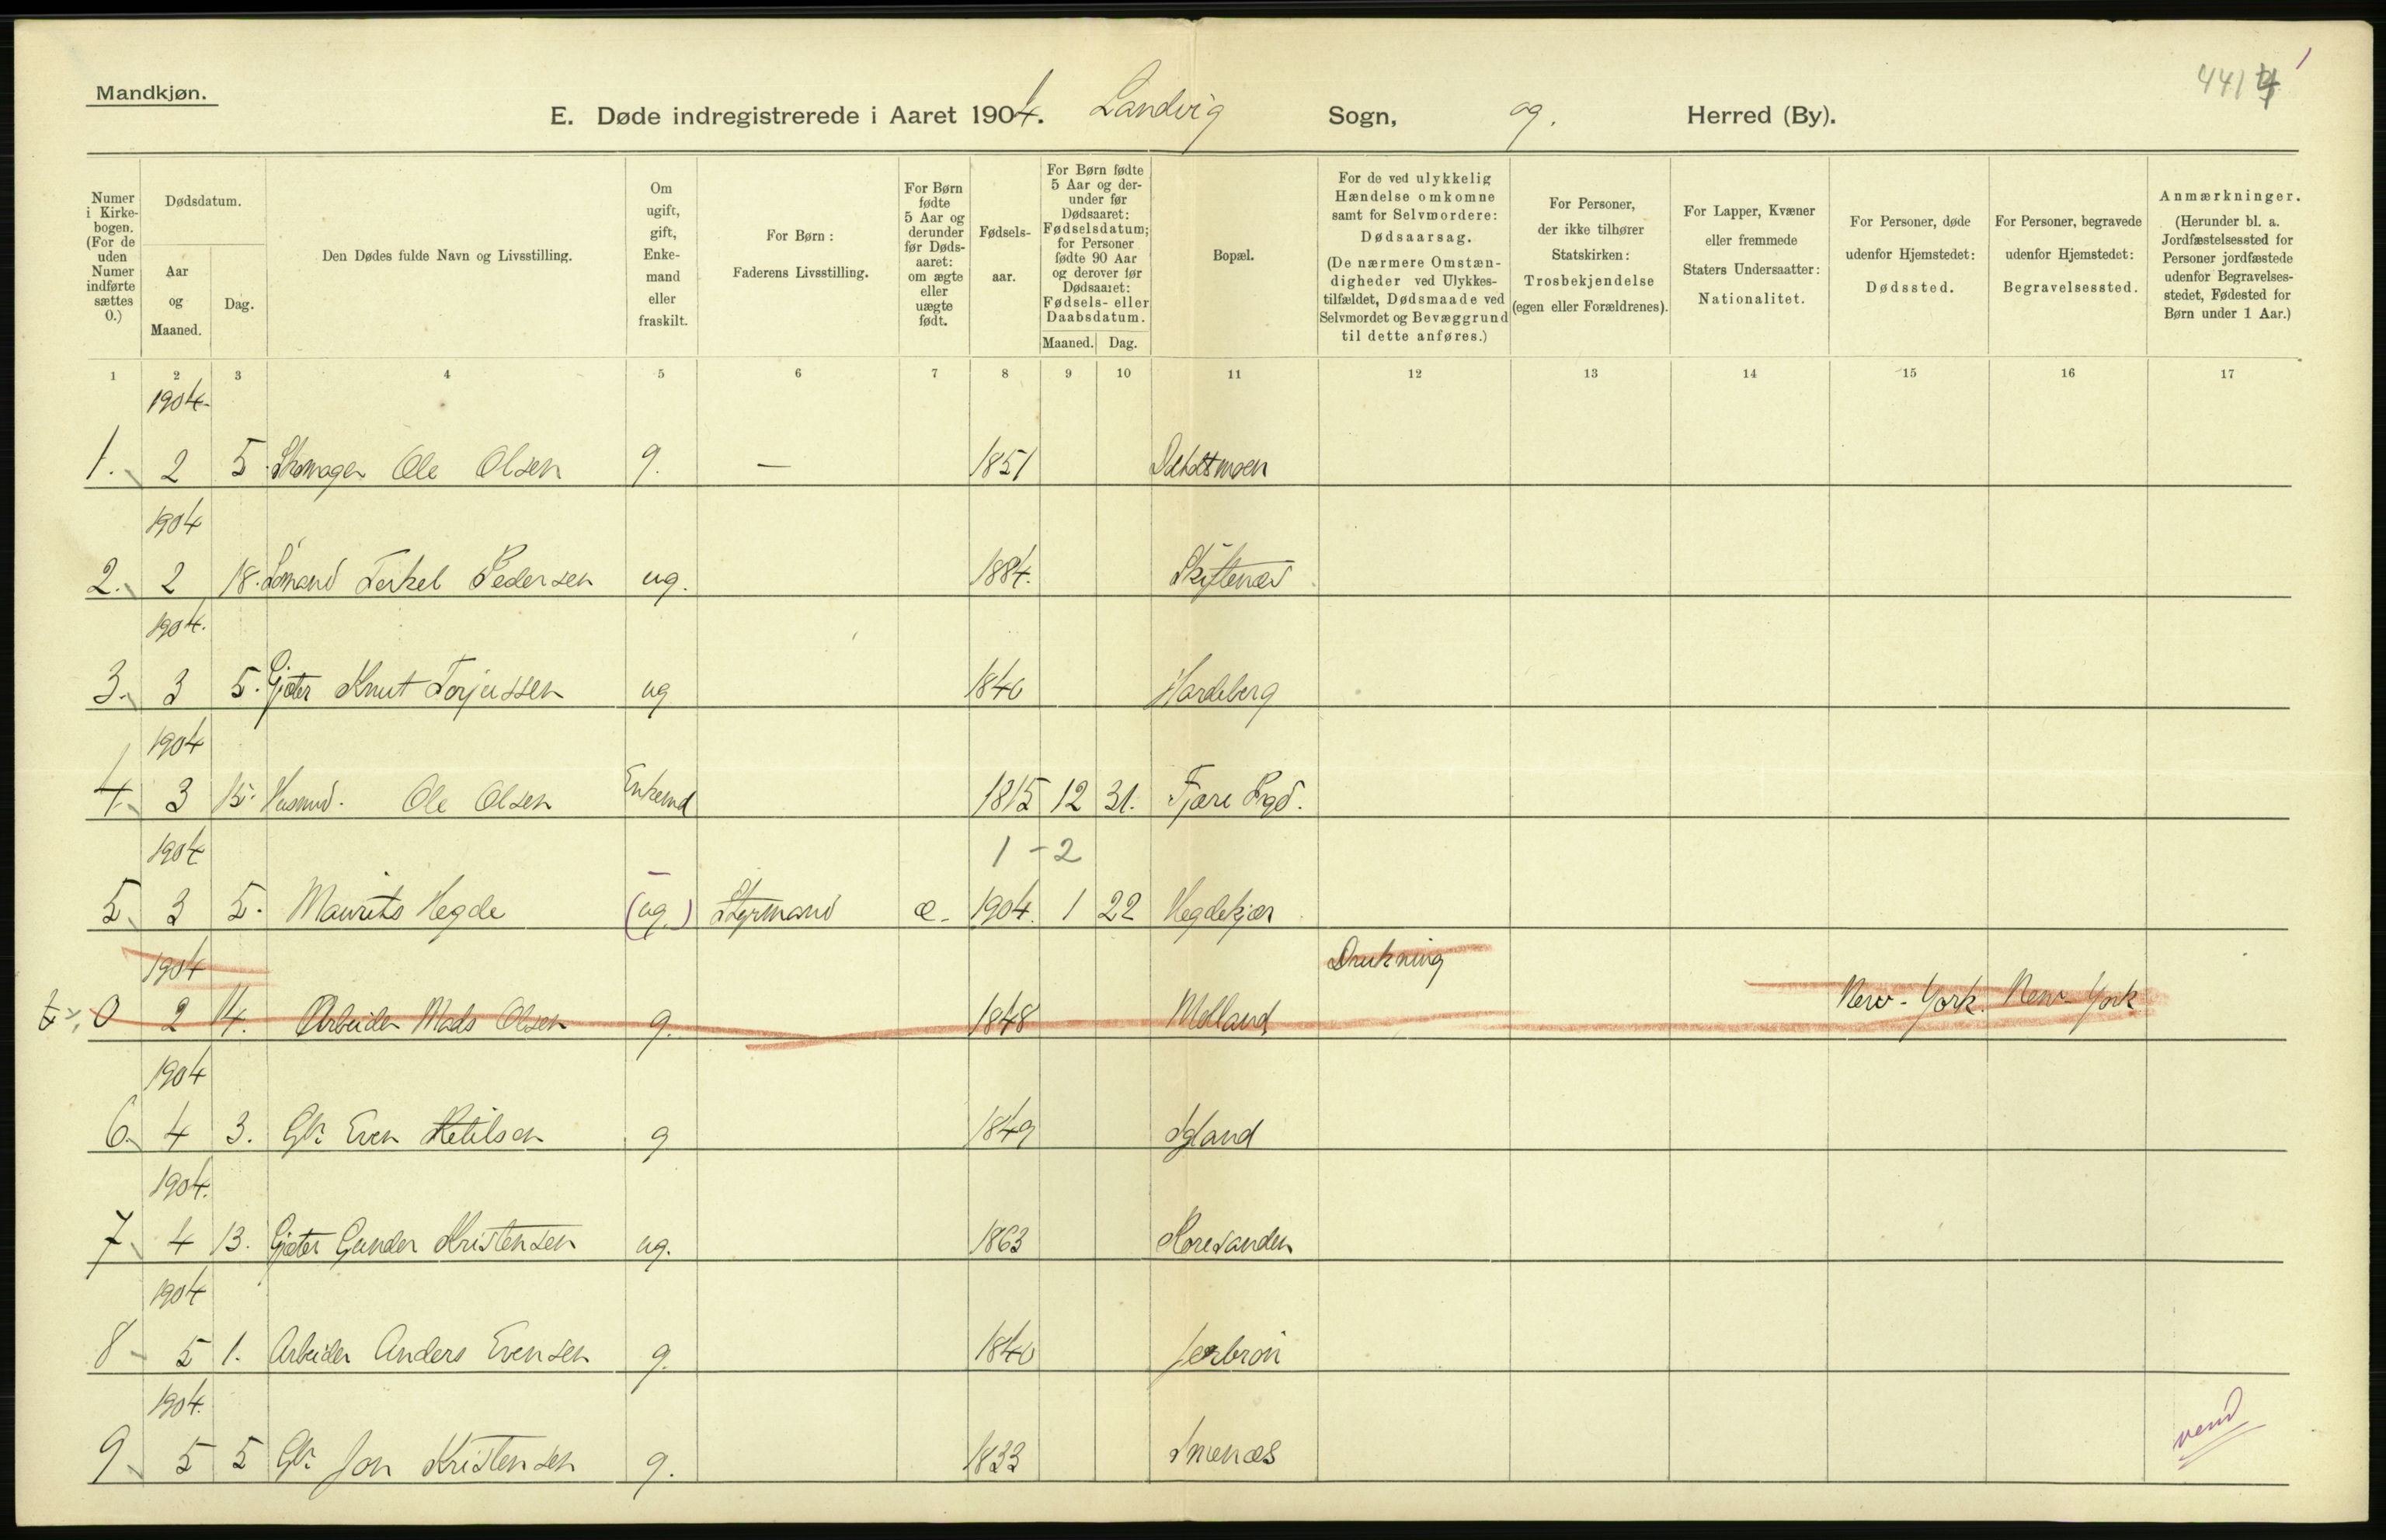 Mandkjøn.
E. Døde indregistrerede i Aaret 1904. Landvig Sogn, og. Herred (By).
Numer i Kirkebogen. (For de uden Numer indførte sættes 0.)
Dødsdatum.
Aar og Maaned.
Dag.
Den Dødes fulde Navn og Livsstilling.
Om ugift, gift, Enkemand eller fraskilt.
For Børn: Faderens Livsstilling.
For Børn fødte 5 Aar og derunder før Dødsaaret: om ægte eller uægte født.
Fødselsaar.
For Børn fødte 5 Aar og derunder før Dødsaaret: Fødselsdatum; for Personer fødte 90 Aar og derover før Dødsaaret: Fødsels- eller Daabsdatum.
Maaned. Dag.
Bopæl.
For de ved ulykkelig Hændelse omkomne samt for Selvmordere: Dødsaarsag. (De nærmere Omstændigheder ved Ulykkestilfældet, Dødsmaade ved Selvmordet og Bevæggrund til dette anføres.)
For Personer, der ikke tilhører Statskirken: Trosbekjendelse (egen eller Forældrenes).
For Lapper, Kvæner eller fremmede Staters Undersaatter: Nationalitet.
For Personer, døde udenfor Hjemstedet: Dødssted.
For Personer, begravede udenfor Hjemstedet: Begravelsessted.
Anmærkninger. (Herunder bl. a. Jordfæstelsessted for Personer jordfæstede udenfor Begravelsesstedet, Fødested for Børn under 1 Aar.)
1 2 3 4 5 6 7 8 9 10 11 12 13 14 15 16 17
1904
1. 2 5 Skomager Ole Olsen g. — 1851
1904
2. 2 18. Sømand Terkel Pedersen ug. 1884. Skiftenæs
1904.
3. 3 5. Gjøter Knut Torjussen ug 1840 Hardeberg
1904
4. 3 15. Husmd. Ole Olsen Enkemd 1815 12 31. Fjære Prgd.
1904 1 - 2
5. 3 5. Maurits Hegde (ug.) Styrmand æ. 1904. 1 22 Hegdekjær
1904 Drukning
0 2 14. Arbeider Mads Olsen g. 1848 Molland New-York. New-York
1904
6. 4 3. Gbr. Even Ketilsen g 1849 Igland
1904.
7. 4 13. Gjøter Gunder Kristensen ug. 1863 Roresanden
1904
8 5 1. Arbeider Anders Evensen g. 1840
1904.
9. 5 5 Gbr. Jon Kristensen g. 1833
vend